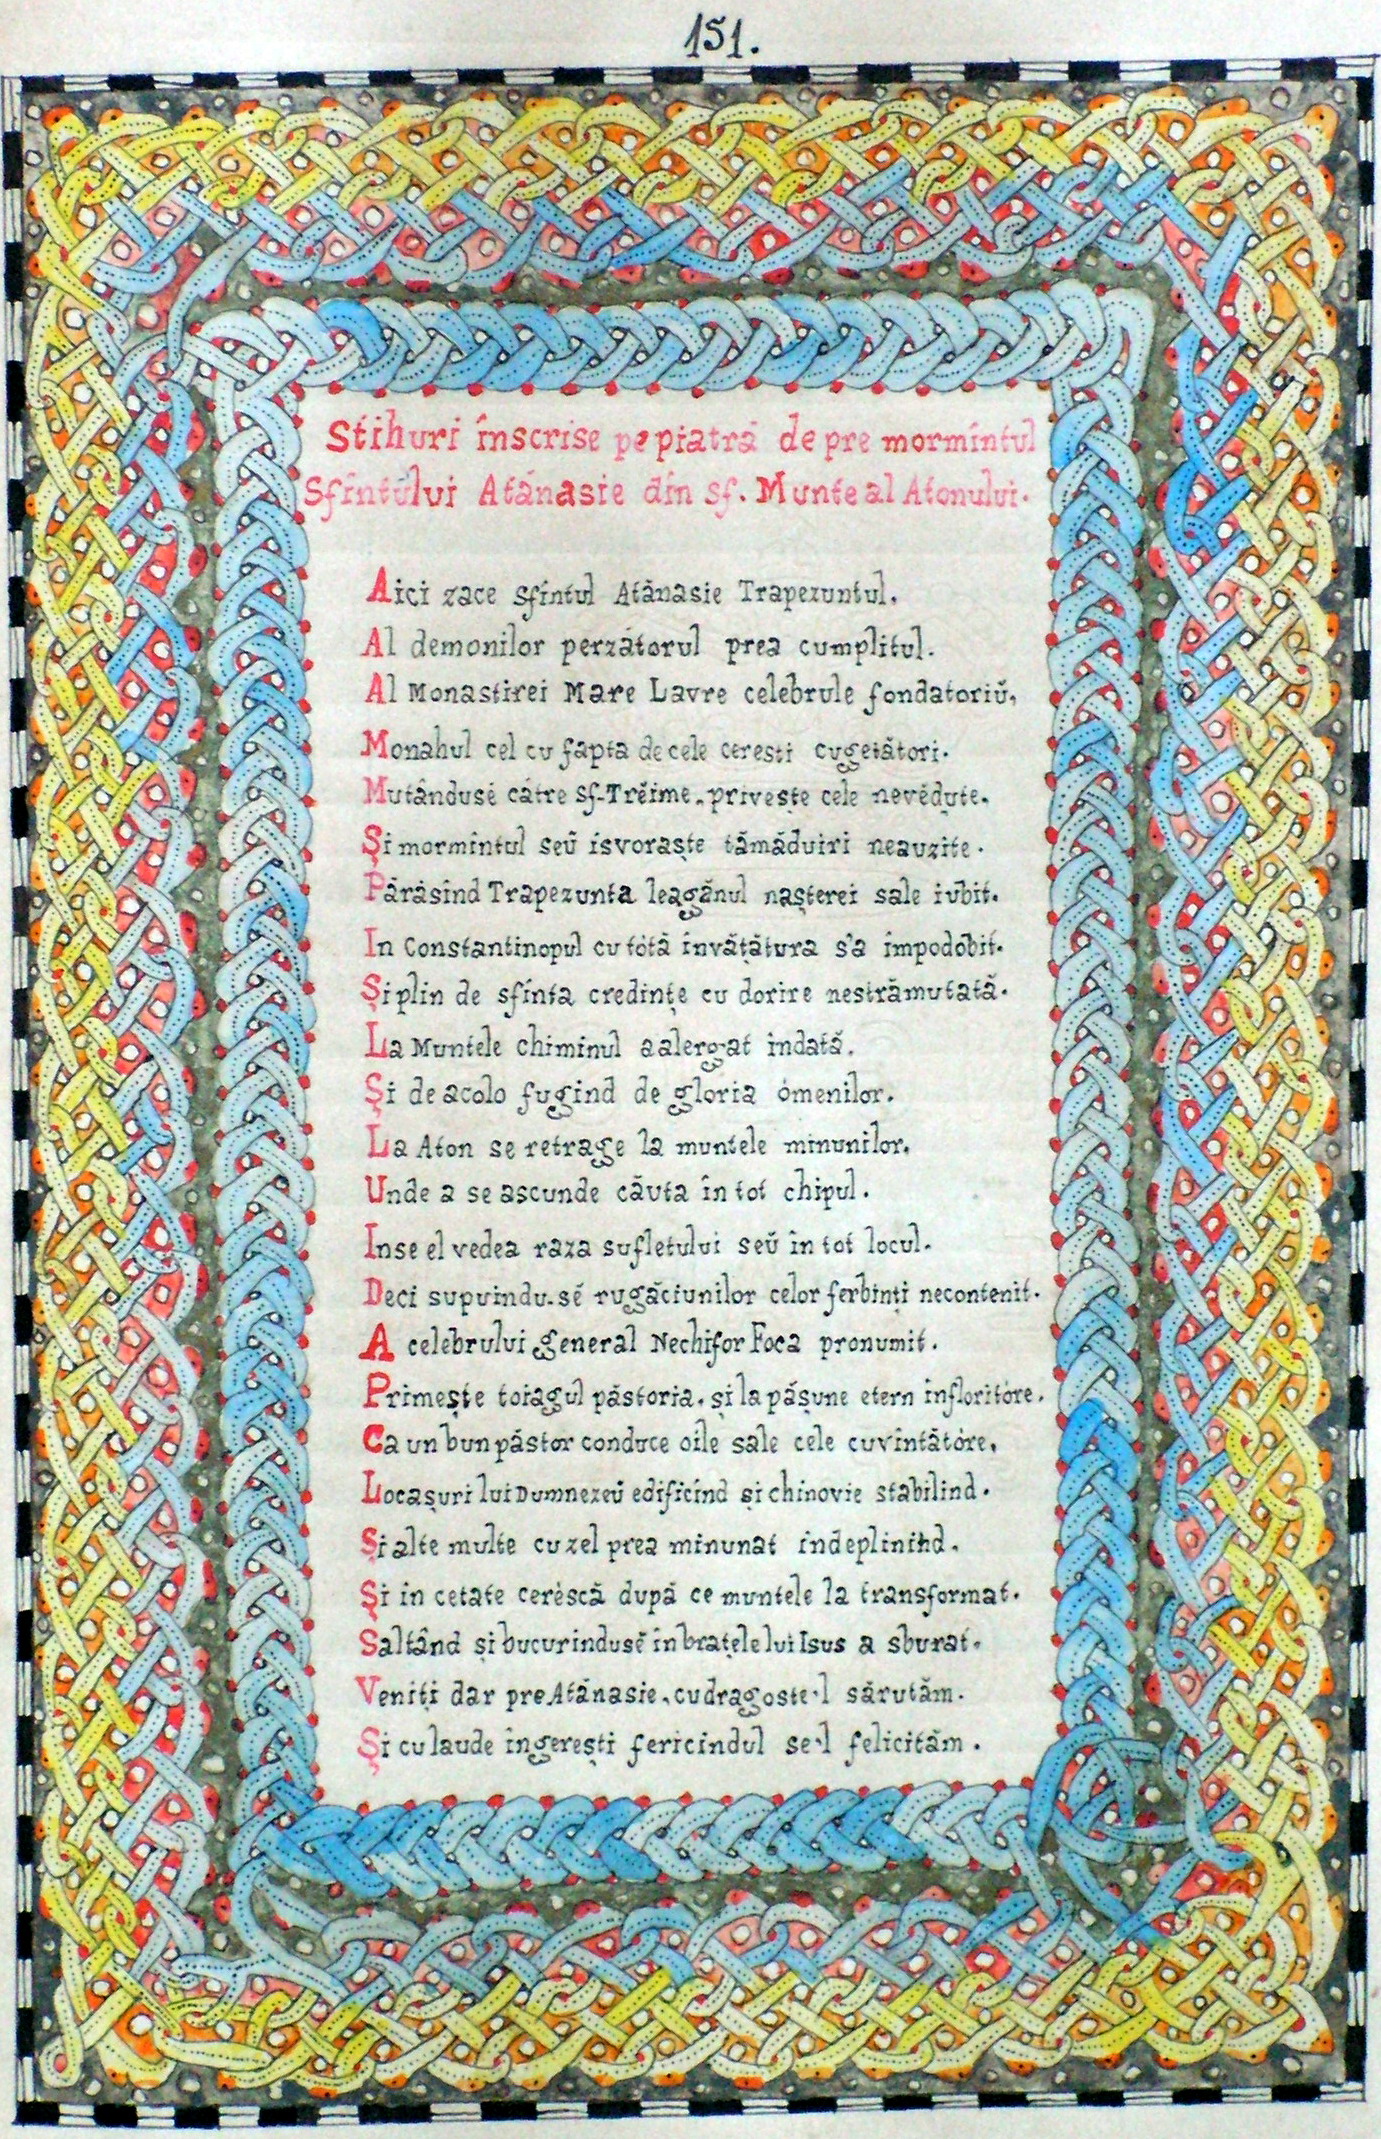 151.
Stihuri înscrise pe piatră de pre mormîntul
Sfîntului Atănasie din sf. Munte al Atonului.
Aici zace sfîntul Atănasie Trapezuntul.
Al demonilor perzătorul prea cumplitul.
Al Monastirei Mare Lavre celebrule fondatoriŭ,
Monahul cel cu fapta de cele ceresti cugetători.
Mutândusĕ cătrĕ Sf-Trĕime. privește cele nevĕdute.
Și mormîntul seŭ isvoraște tămăduiri neauzite.
Părăsind Trapezunta leagănul nașterei sale iubit.
In Constantinopul cu tótă învățătura s'a împodobit.
Și plin de sfînta credințe cu dorire nestrămutată.
La Muntele chiminul a alergat îndată.
Și de acolo fugind de gloria ómenilor.
La Aton se retrage la muntele minunilor.
Unde a se ascunde căuta în tot chipul.
Inse el vedea raza sufletului seŭ în tot locul.
Deci supuindu-sĕ rugăciunilor celor ferbinți necontenit.
A celebrului general Nechifor Foca pronumit.
Primește toiagul păstoria. și la pășune etern înfloritóre.
Ca un bun păstor conduce oile sale cele cuvîntătóre,
Locașuri lui Dumnezeŭ edificînd și chinovie stabilind.
Și alte multe cu zel prea minunat îndeplinind.
Și în cetate ceréscă după ce muntele la transformat.
Saltând și bucurindusĕ în brațele lui Isus a sburat.
Veniți dar pre Atănasie, cu dragoste-l sărutăm.
Și cu laude îngerești fericindul se-l felicităm.